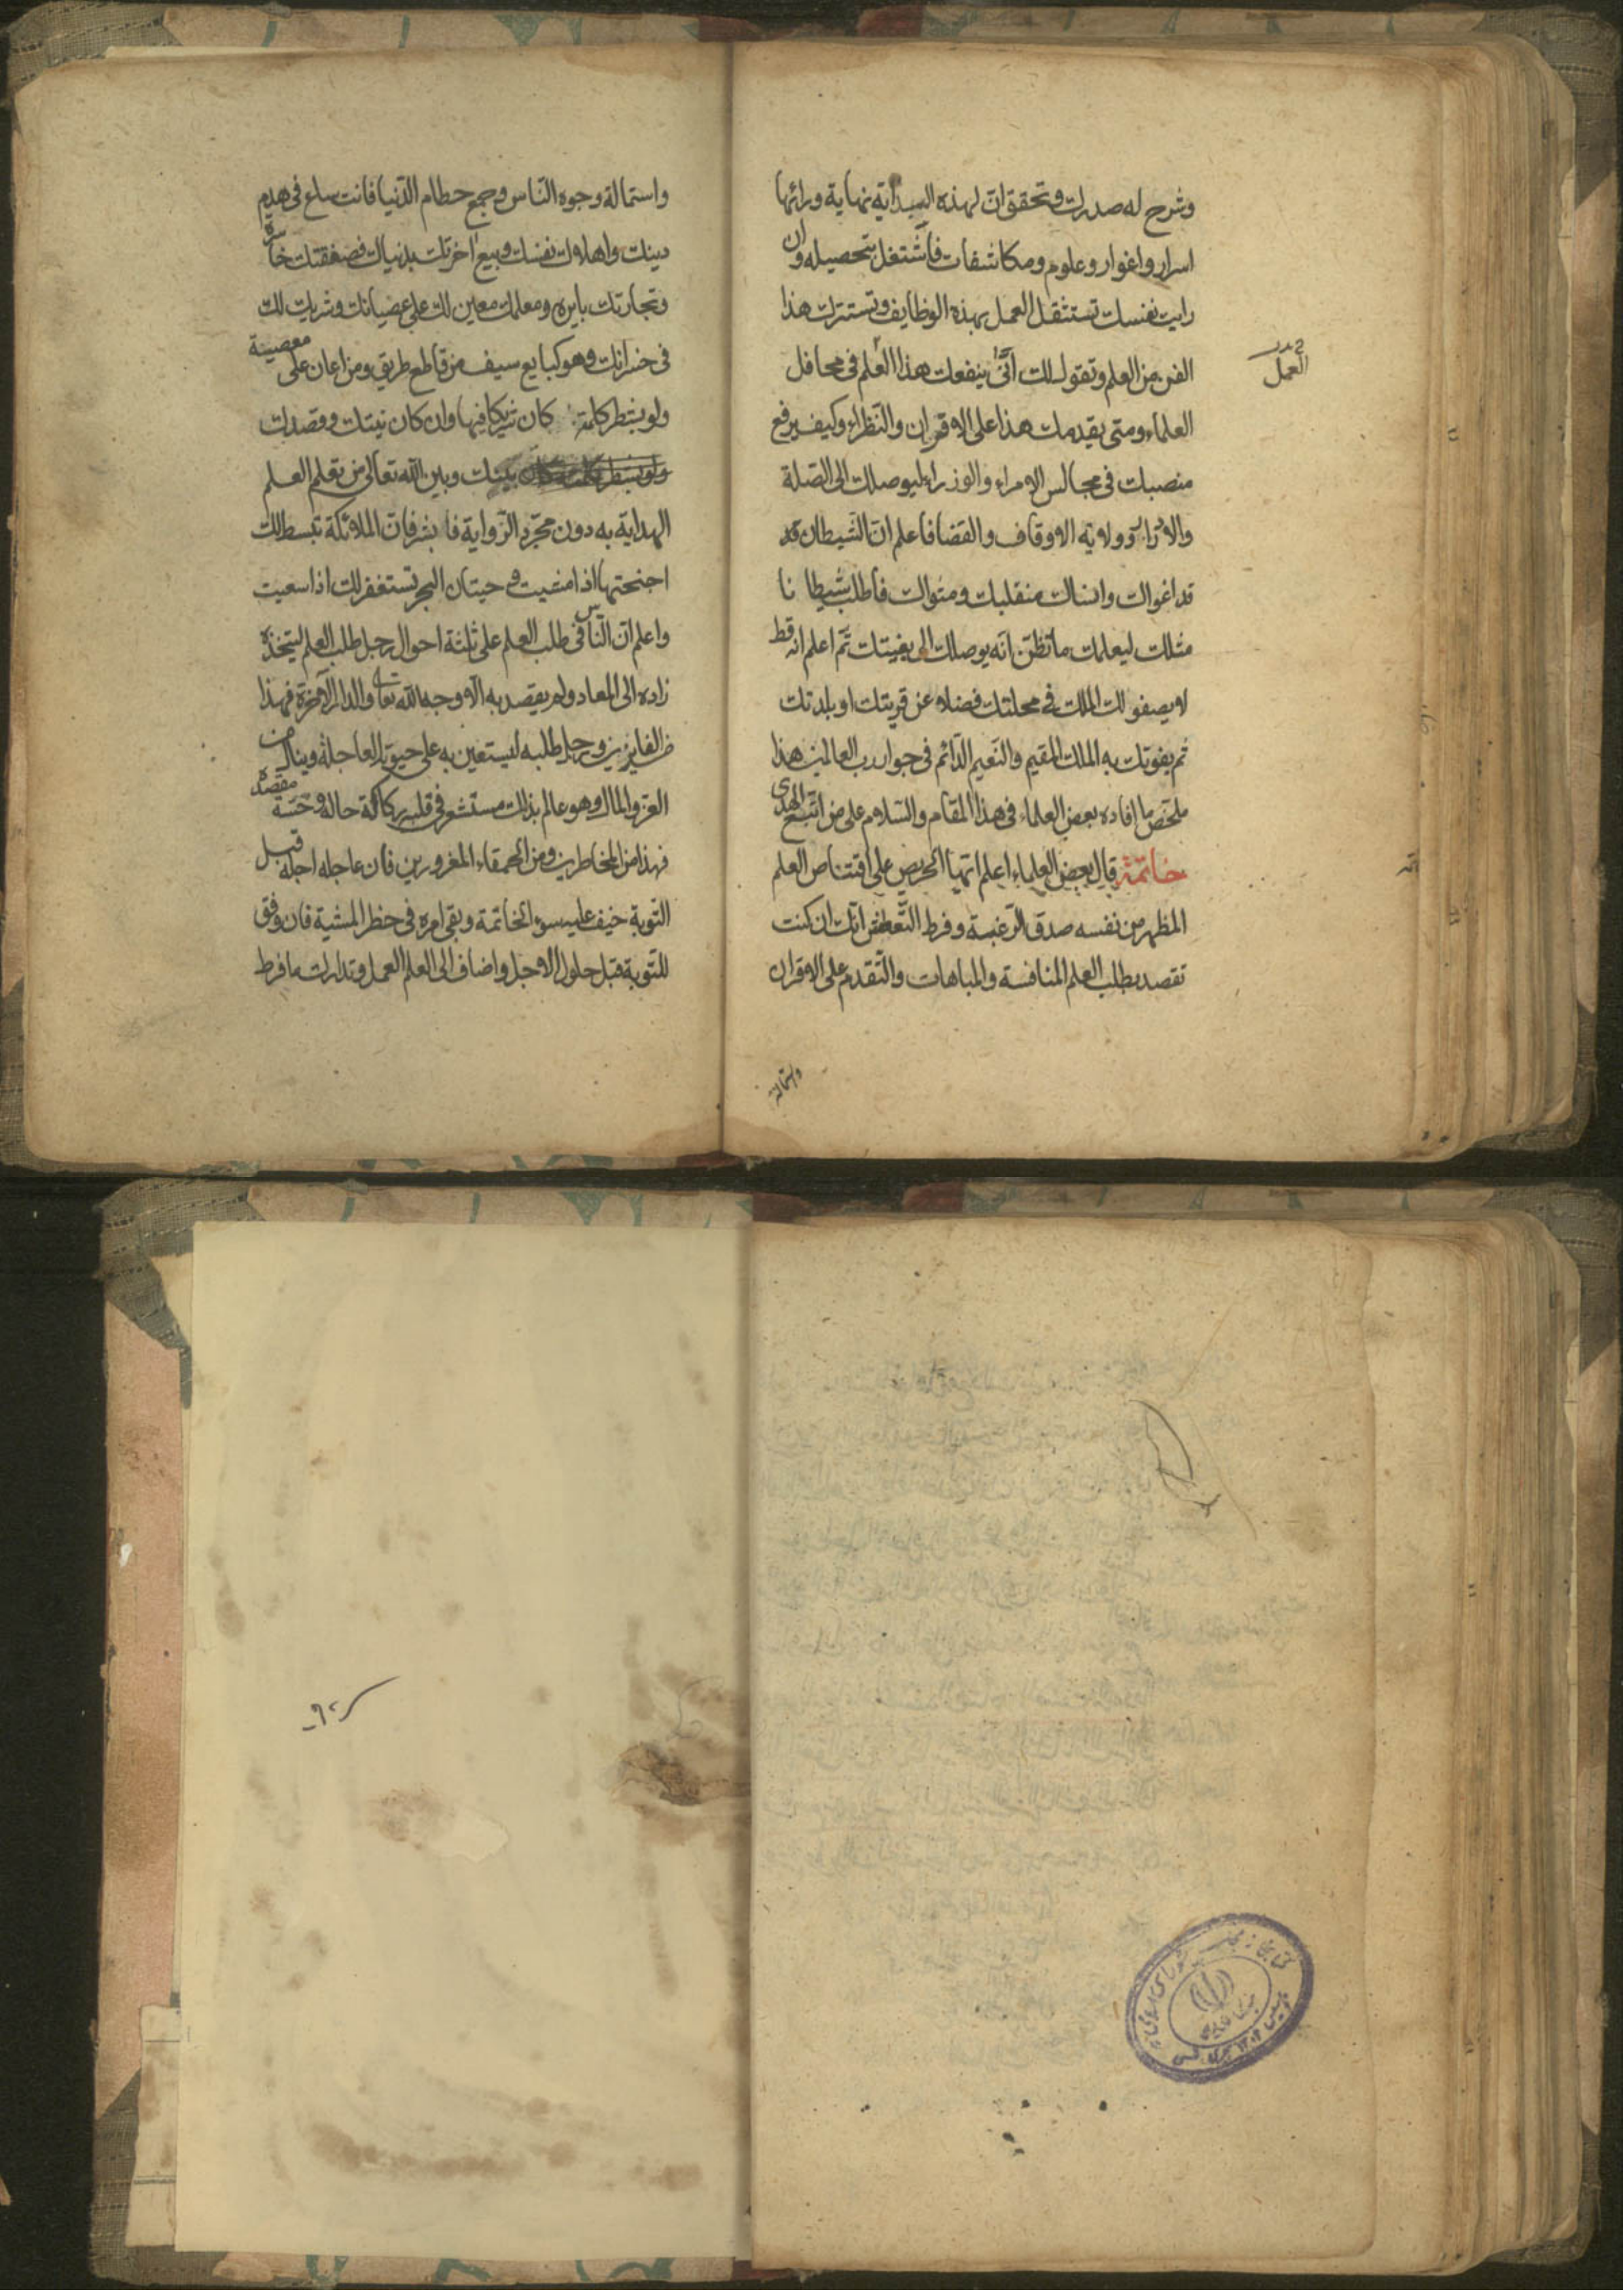 وشرح له صدرك وتحقق ان لهذه البداية نهاية ورائها
اسرار واغوار وعلوم ومكاشفات فاشتغل بتحصيله وان
رايت نفسك تستثقل العمل بهذه الوظايف وتستترك هذا
الفن من العلم وتقول لك انّى ينفعك هذا العلم فى محافل
العلماء ومتى يقدمك هذا على الاقران والنظراء وكيف يرفع
منصبك فى مجالس الامراء والوزراء ليوصلك الى الصلة
والارزاق وولاية الاوقاف والقضا فاعلم ان الشيطان قد
قد اغواك وانساك منقلبك ومثواك فاطلب شيطانا
مثلك ليعلمك ما تظن انه يوصلك الى بغيتك ثم اعلم انه قط
لا يصفو لك الملك فى محلتك فضلا عن قريتك او بلدتك
ثم يفوتك به الملك المقيم والنعيم الدائم فى جوار رب العالمين هذا
ملخص ما افاده بعض العلماء فى هذا المقام والسلام على من اتبع الهدى
خاتمة قال بعض العلماء اعلم ايها الحريص على اقتناص العلم
المظهر من نفسه صدق الرغبة وفرط التعطش انك ان كنت
تقصد بطلب العلم المنافسة والمباهات والتقدم على الاقران
العمل
واستمالة
واستمالة وجوه الناس وجمع حطام الدنيا فانت ساع فى هدم
دينك واهلاك نفسك وبيع اخرتك بدنياك فصفقتك خاسرة
وتجارتك بايره ومعلمك معين لك على عصيانك وشريك لك
فى خسرانك وهو كبايع سيف من قاطع طريق ومن اعان على معصية
ولو بشطر كلمة كان شريكا فيها وان كان نيتك وقصدك
بينك وبين الله تعالى من تعلم العلم
الهداية به دون مجرد الرواية فابشر فان الملائكة تبسط لك
اجنحتها اذا مشيت وحيتان البحر تستغفر لك اذا سعيت
واعلم ان الناس فى طلب العلم على ثلثة احوال رجل طلب العلم ليتخذه
زاده الى المعاد ولم يقصد به الا وجه الله تعالى والدار الآخرة فهذا
من الفايزين ورجل طلبه ليستعين به على حيوته العاجلة وينال من
العز والمال وهو عالم بذلك مستشعر فى قلبه ركاكة حاله وخسة مقصده
فهذا من المخاطرين ومن الحمقاء المغرورين فان عاجله اجله قبل
التوبة خيف عليه سوء الخاتمة وبقى امره فى خطر المشية فان وفق
للتوبة قبل حلول الاجل واضاف الى العلم العمل وتدارك ما فرط
كتابخانه مجلس شورای اسلامی